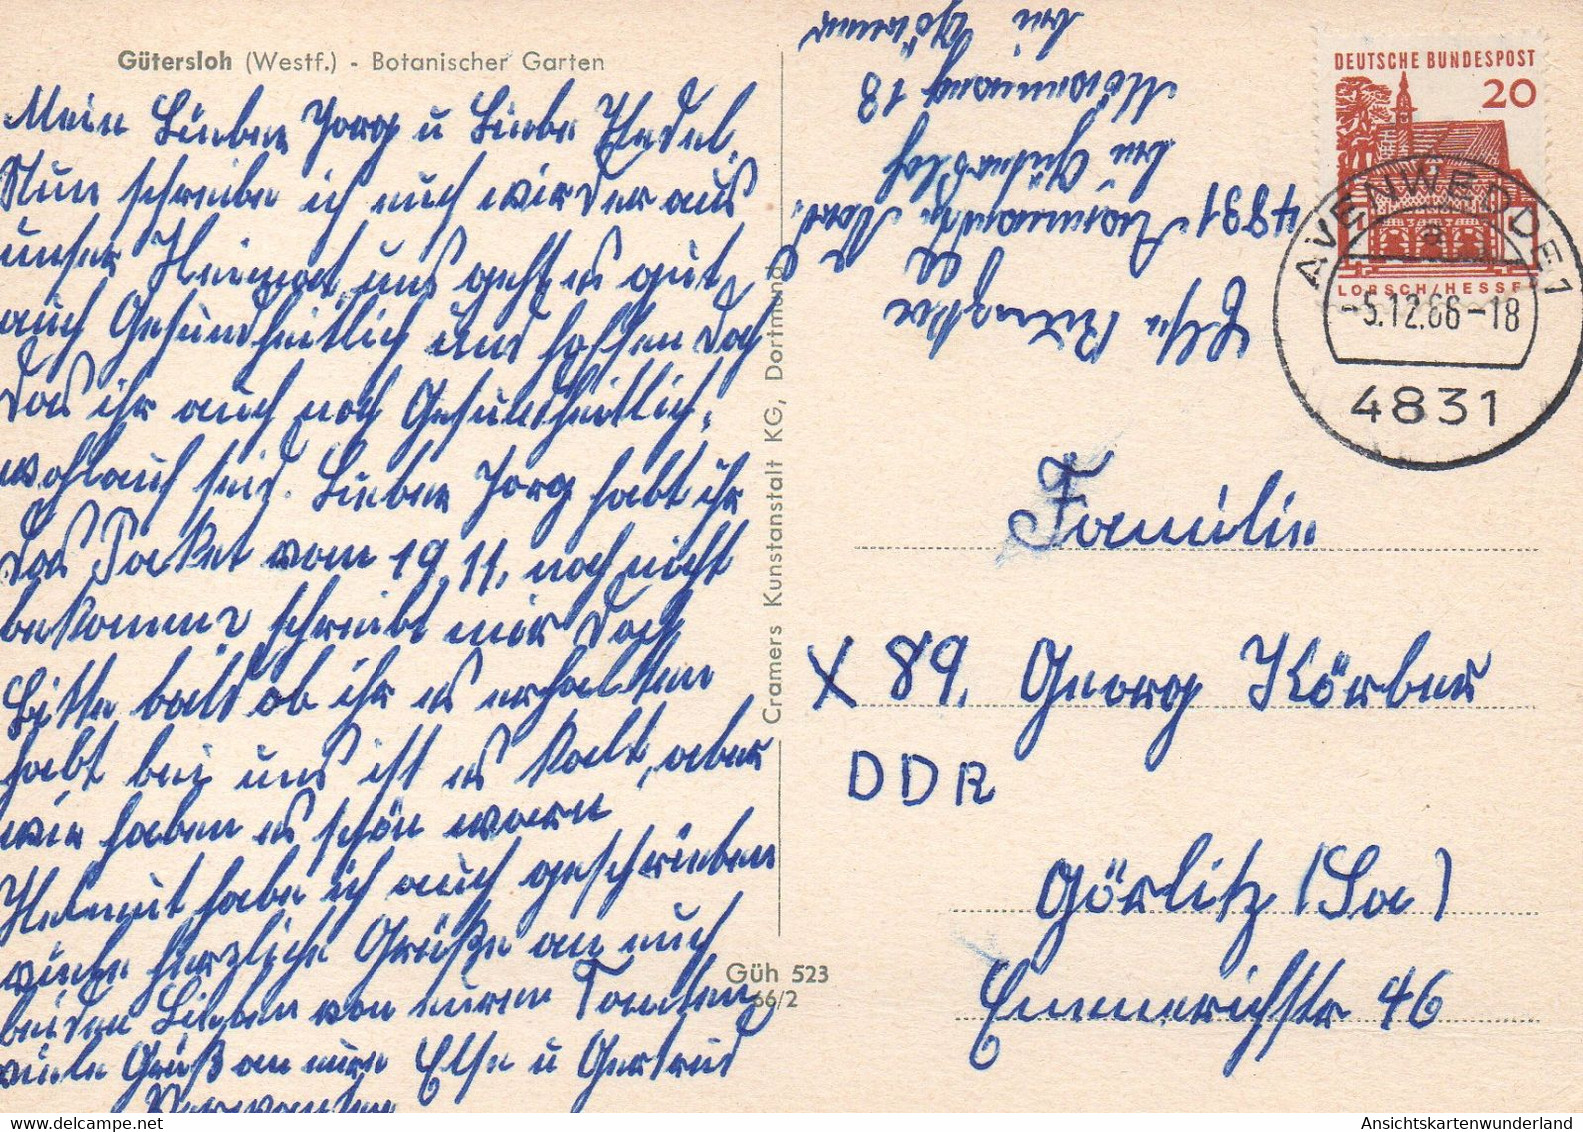 Gütersloh (Westf.) - Botanischer Garten
Mein Lieber Jorg u Liebe Hedel.
Nun schreibe ich euch wieder aus
unser Heimat, uns geht es gut
auch Gesundheitlich und hoffen doch
das ihr auch noch Gesundheitlich,
wohlauf seid. Lieber Jorg habt ihr
das Paket vom 19.11. noch nicht
bekommen schreibt mir doch
Bitte bald ob ihr es erhalten
habt bei uns ist es kalt, aber
wir haben es schön warm
Helmut habe ich auch geschrieben
viele herzliche Grüße an euch
beiden Lieben von euren Tanten
viele Grüß an eure Else u Gertrud
Verwandten
Cramers Kunstanstalt KG, Dortmund
Güh 523
66/2
Else
4831
bei Gütersloh
18
bei
DEUTSCHE BUNDESPOST
20
LORSCH/HESSEN
AVENWEDDE 1
a
-5.12.66-18
4831
Familie
X 89. Georg Körber
DDR
Görlitz (Sa)
Emmerichstr 46
Ansichtskartenwunderland